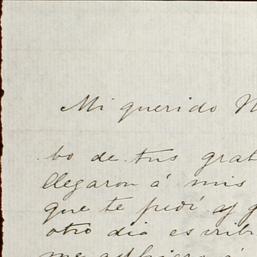 Mi querido
bo de tus grat
llegaron á mis
que te pedí y
otro dia escrib